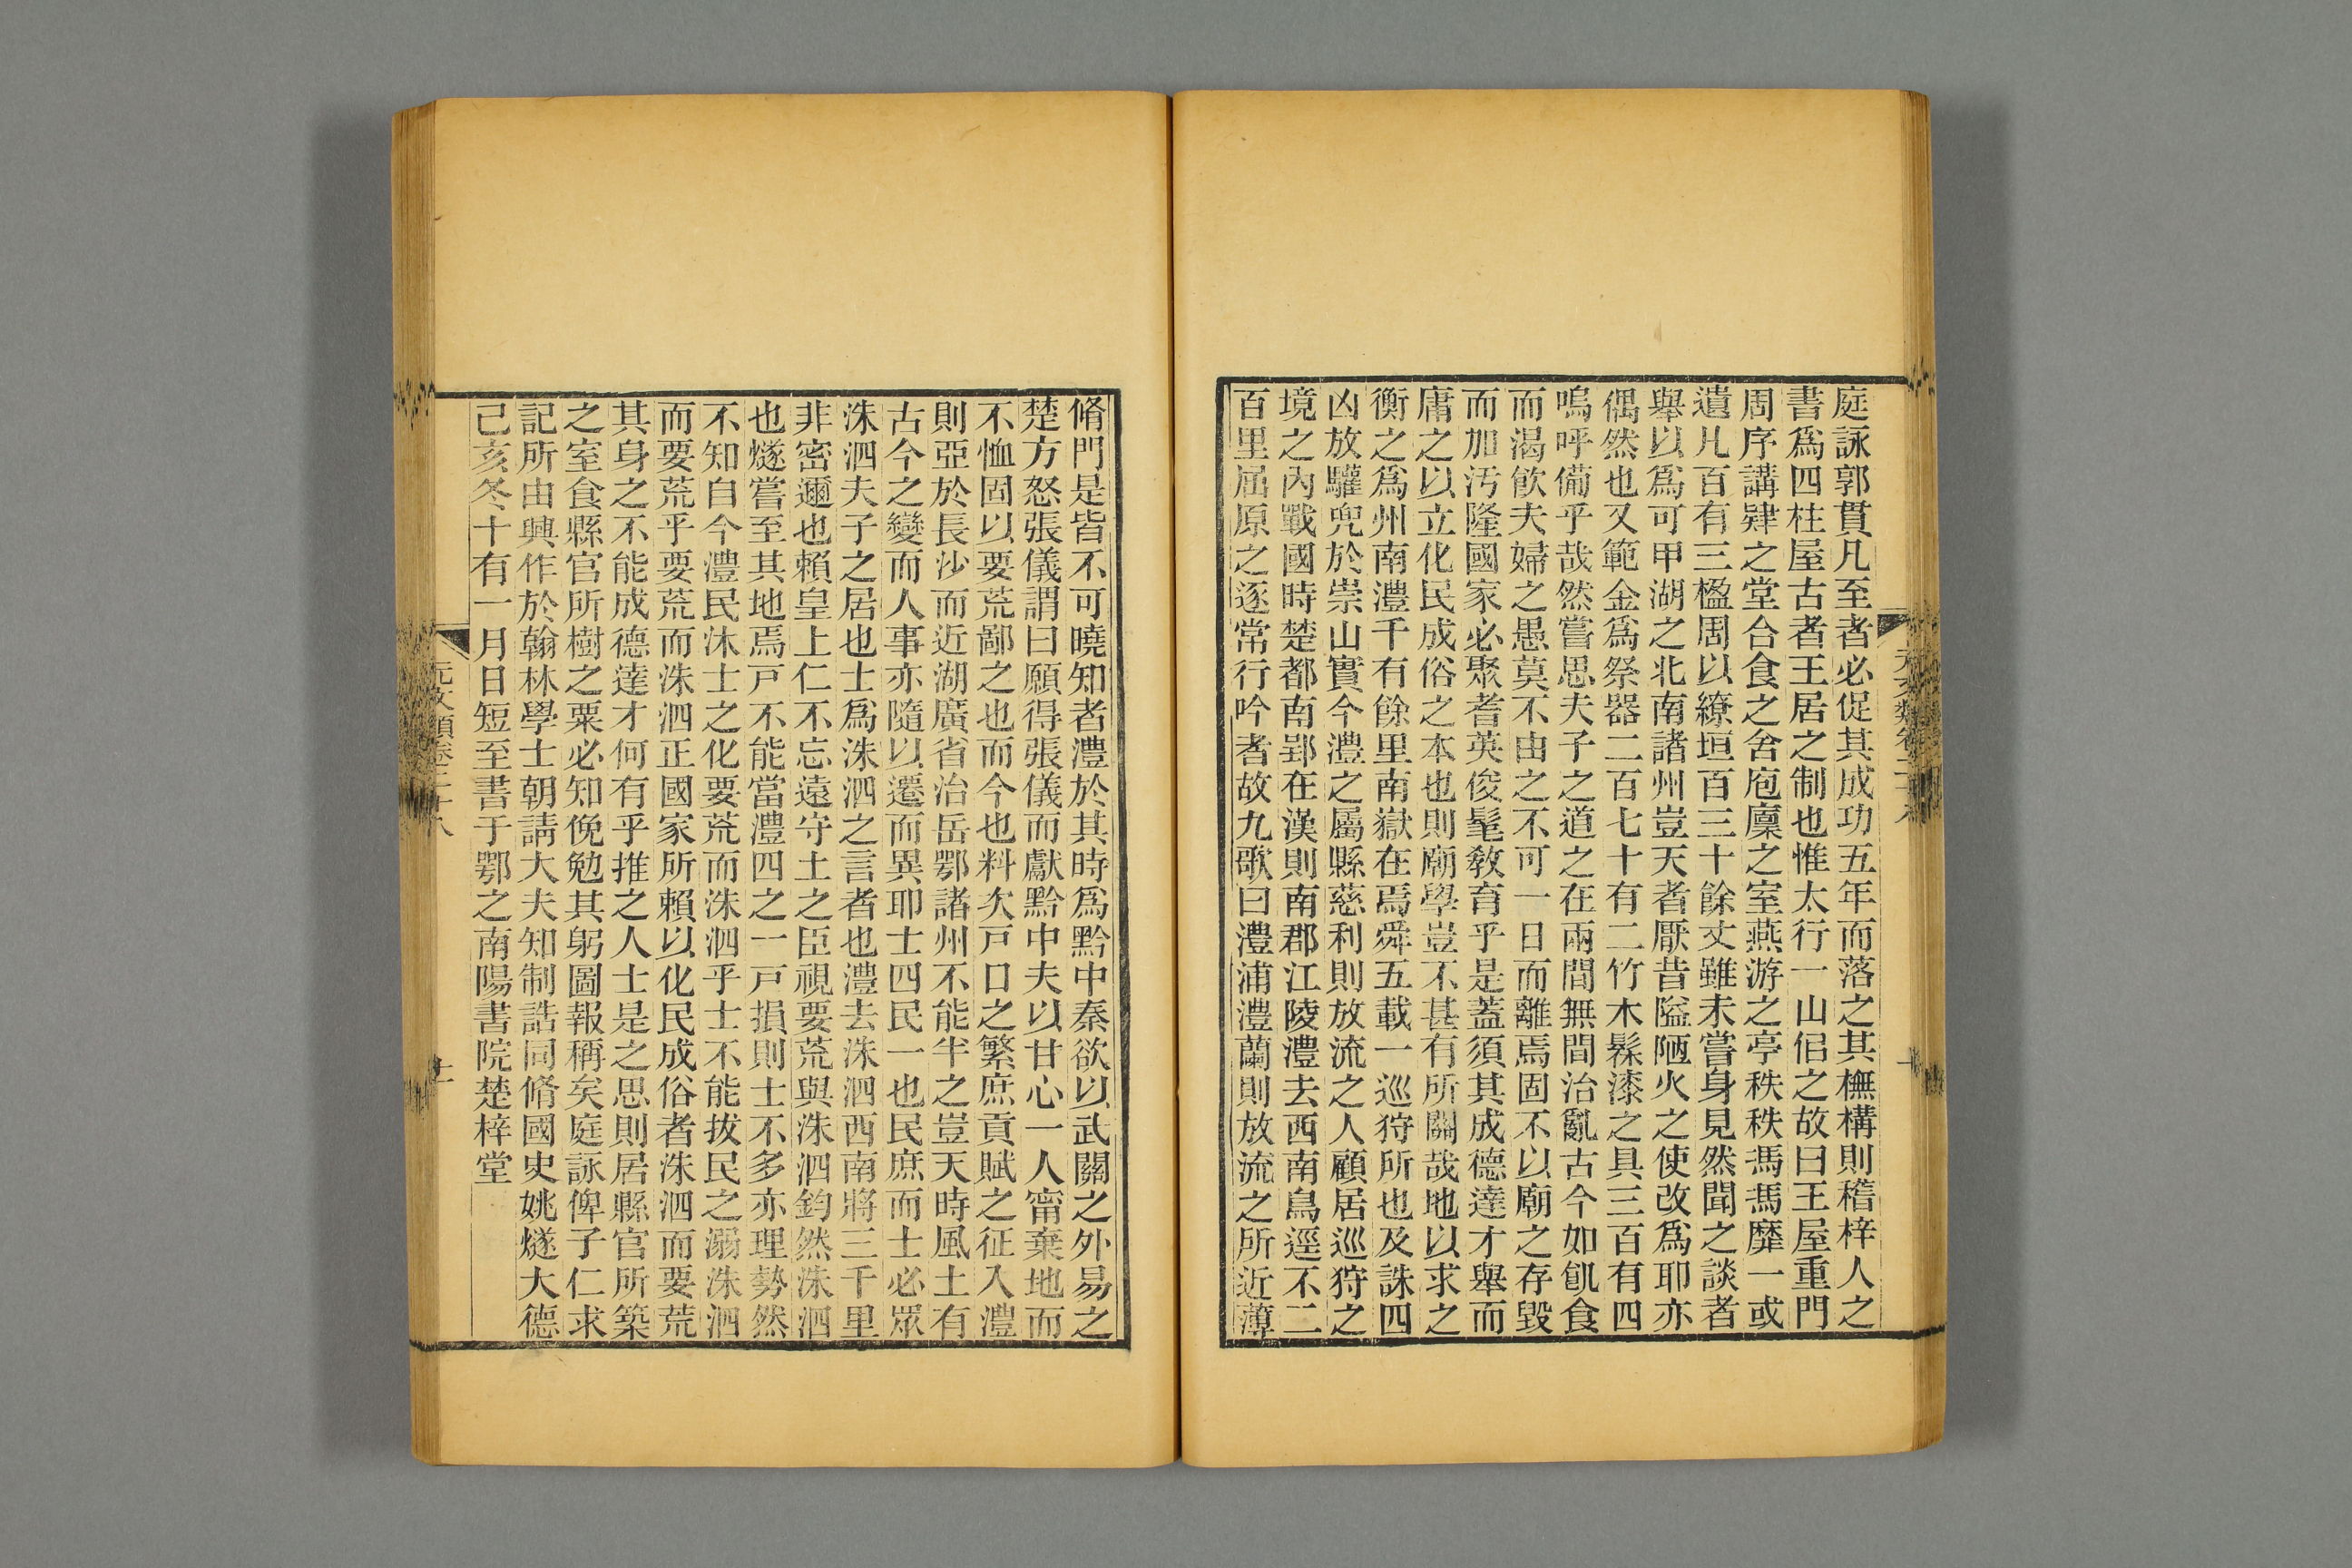 庭詠郭貫凡至者必促其成功五年而落之其橅構則稽梓人之
書爲四柱屋古者王居之制也惟太行一山侣之故曰王屋重門
周序講肄之堂合食之舍庖廩之室燕游之亭秩秩馮馮靡一或
遺凡百有三楹周以繚垣百三十餘丈雖未嘗身見然聞之談者
舉以爲可甲湖之北南諸州豈天者厭昔隘陋火之使改爲耶亦
偶然也又範金爲祭器二百七十有二竹木髹漆之具三百有四
嗚呼備乎哉然嘗思夫子之道之在兩間無間治亂古今如飢食
而渴飲夫婦之愚莫不由之不可一日而離焉固不以廟之存毀
而加汚隆國家必聚耆英俊髦敎育乎是蓋須其成德達才舉而
庸之以立化民成俗之本也則廟學豈不甚有所關哉地以求之
衡之爲州南澧千有餘里南嶽在焉舜五載一巡狩所也及誅四
凶放驩兜於崇山實今澧之屬縣慈利則放流之人顧居巡狩之
境之內戰國時楚都南郢在漢則南郡江陵澧去西南鳥逕不二
百里屈原之逐常行吟者故九歌曰澧浦澧蘭則放流之所近薄
脩門是皆不可曉知者澧於其時爲黔中秦欲以武關之外易之
楚方怒張儀謂曰願得張儀而獻黔中夫以甘心一人甯棄地而
不恤固以要荒鄙之也而今也料次戸口之繁庶貢賦之征入澧
則亞於長沙而近湖廣省治岳鄂諸州不能半之豈天時風土有
古今之變而人事亦隨以遷而異耶士四民一也民庶而士必眾
洙泗夫子之居也士爲洙泗之言者也澧去洙泗西南將三千里
非密邇也賴皇上仁不忘遠守土之臣視要荒與洙泗鈞然洙泗
也燧嘗至其地焉戸不能當澧四之一戸損則士不多亦理勢然
不知自今澧民沐士之化要荒而洙泗乎士不能拔民之溺洙泗
而要荒乎要荒而洙泗正國家所賴以化民成俗者洙泗而要荒
其身之不能成德達才何有乎推之人士是之思則居縣官所築
之室食縣官所樹之粟必知俛勉其躬圖報稱矣庭詠俾子仁求
記所由興作於翰林學士朝請大夫知制誥同脩國史姚燧大德
己亥冬十有一月日短至書于鄂之南陽書院楚梓堂
元文類卷二十八
十一